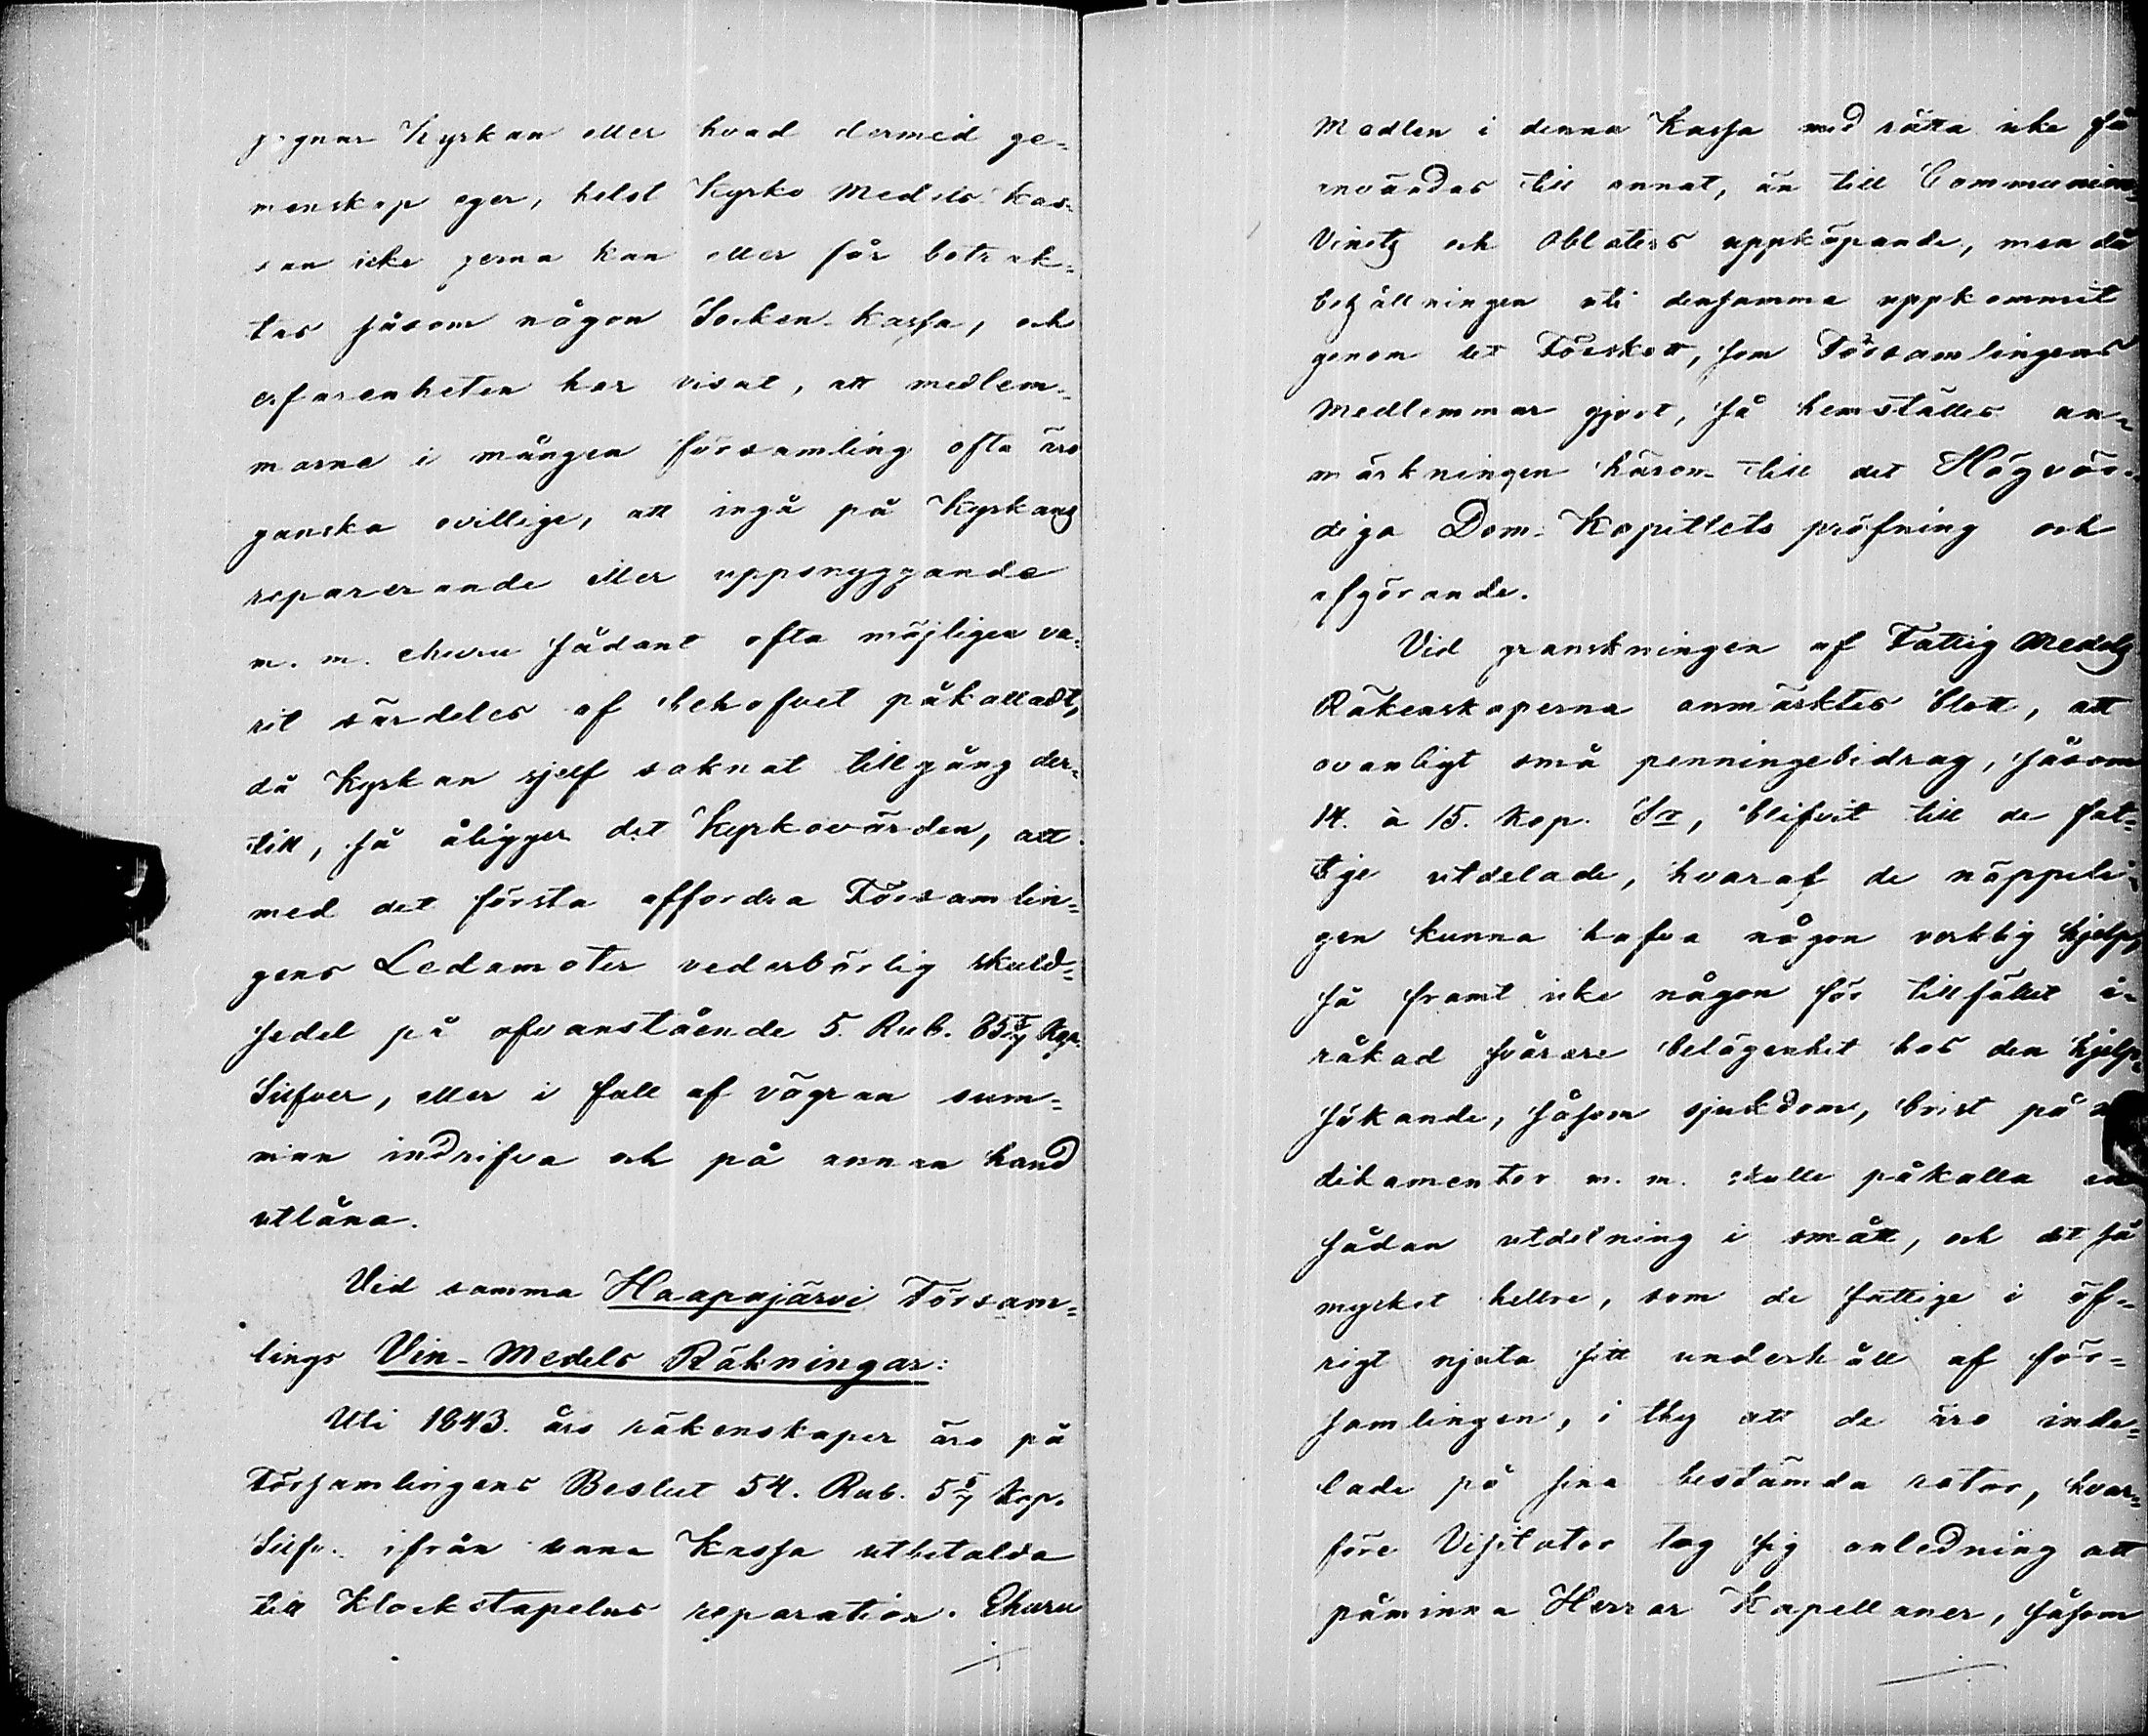 gagnar Kyrkan eller hvad dermed ge-
menskap eger, helst Kyrko Medels Kas-
san icke gerna kan eller får betrak-
tas såsom någon Socken-Kassa, och
erfarenheten har visat, att medlem-
marne i mången församling ofta äro
ganska ovillige, att ingå på Kyrkans
reparerande eller uppsnyggande
m. m. ehuru sådant ofta möjligen va-
rit särdeles af behofvet påkalladt,
då Kyrkan sjelf saknat tillgång der-
till, så åligger det Kyrkovärden, att
med det första affordra Församlin-
gens Ledamoter vederbörlig skuld-
sedel på ofvanstående 5. Rub. 85 5/7 Kop.
Silfver, eller i fall af vägran sum-
man indrifva och på annan hand
utlåna.
Vid samma Haapajärvi Försam-
lings Vin-Medels Räkningar:
Uti 1843. års räkenskaper äro på
Församlingens Beslut 54. Rub. 5 5/7 Kop.
Silfv. ifrån denna Kassa utbetalda
till Klockstapelns reparation. Ehuru
Medlen i denna Kassa med rätta icke få
användas till annat, än till Communion-
Vinets och Oblaters uppköpande, men då
behållningen uti densamma uppkommit
genom det Förskott, som Församlingens
Medlemmar gjort, så hemställes an-
märkningen härom till det Högvör-
diga Dom-Kapitlets pröfning och
afgörande.
Vid granskningen af Fattig Medels
Räkenskaperna anmärktes blott, att
ovanligt små penningebidrag, såsom
14. à 15. Kop. Sr, blifvit till de fat-
tige utdelade, hvaraf de näppeli-
gen kunna hafva någon verklig hjelp,
så framt icke någon för tillfället i-
råkad svårare belägenhet hos den hjelp-
sökande, såsom sjukdom, brist på
dikamenter m. m. skulle påkalla en
sådan utdelning i smått, och det så
mycket hellre, som de fattige i öf-
rigt njuta sitt underhåll af för-
samlingen, i thy att de äro inde-
lade på sina bestämda rotor, hvar-
före Visitator tog sig anledning att
påminna Herrar Kapellaner, såsom